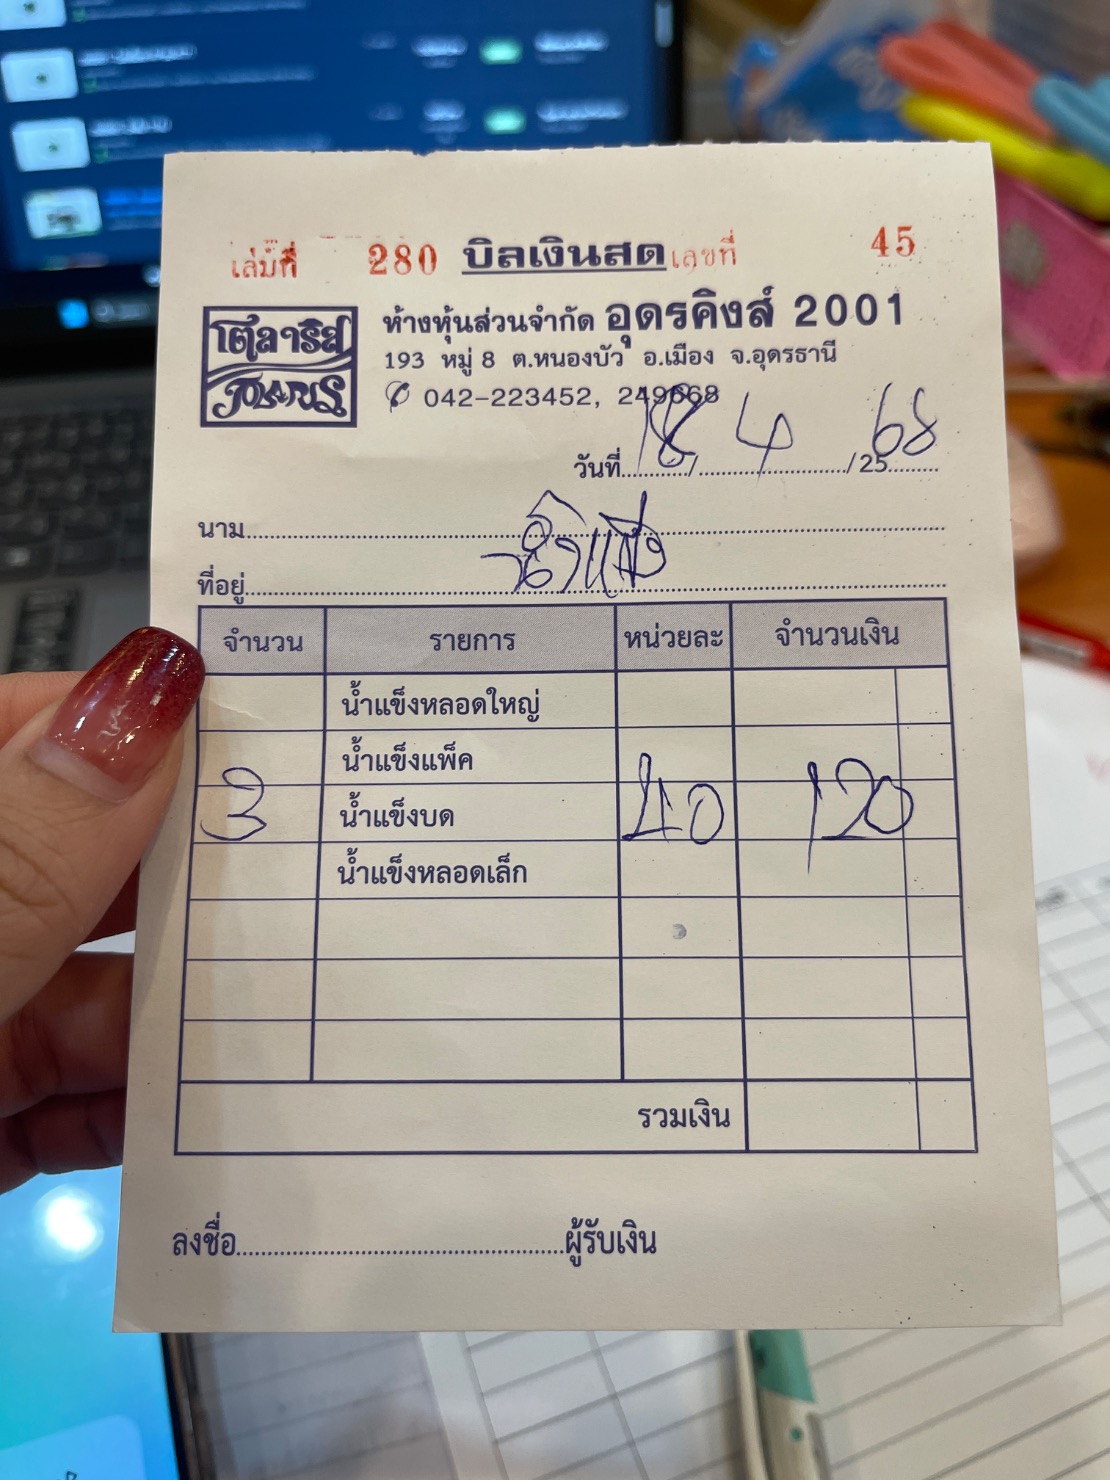 เล่มที่ 280 บิลเงินสด เลขที่ 45
โพลาริส
POLARIS
ห้างหุ้นส่วนจำกัด อุดรคิงส์ 2001
193 หมู่ 8 ต.หนองบัว อ.เมือง จ.อุดรธานี
042-223452, 249668
วันที่ 18 / 4 / 25 68
นาม
ที่อยู่ น้ำแข็ง
จำนวน รายการ หน่วยละ จำนวนเงิน
น้ำแข็งหลอดใหญ่
น้ำแข็งแพ็ค
3 น้ำแข็งบด 40 120
น้ำแข็งหลอดเล็ก
รวมเงิน
ลงชื่อ ผู้รับเงิน